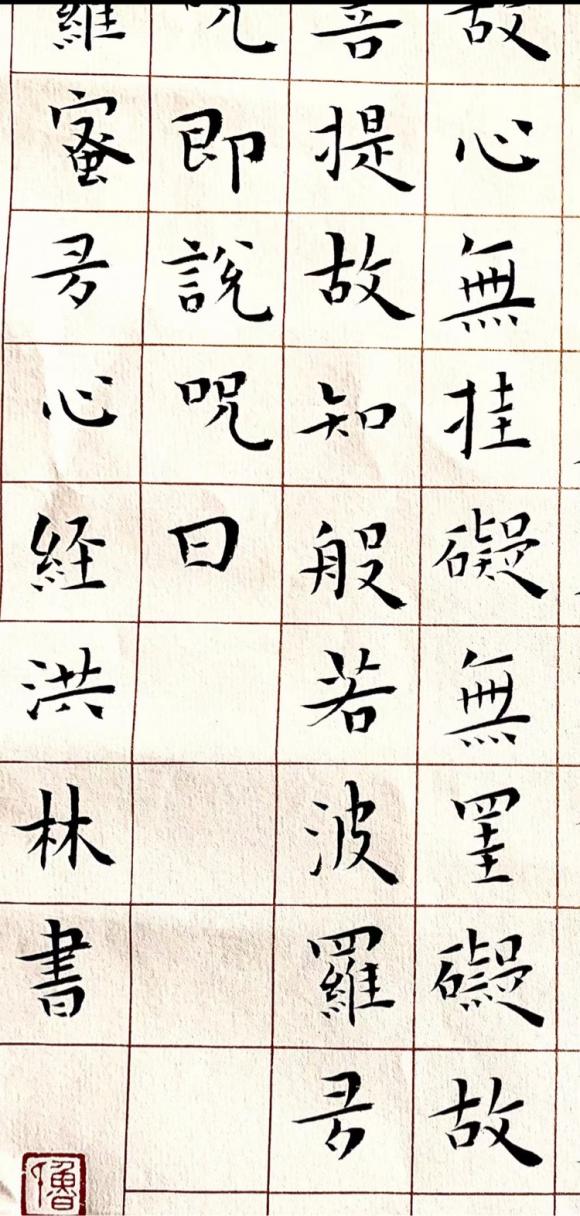 故心無挂礙無罣礙故
菩提故知般若波羅夛
呪即說呪曰
羅蜜夛心経洪林書